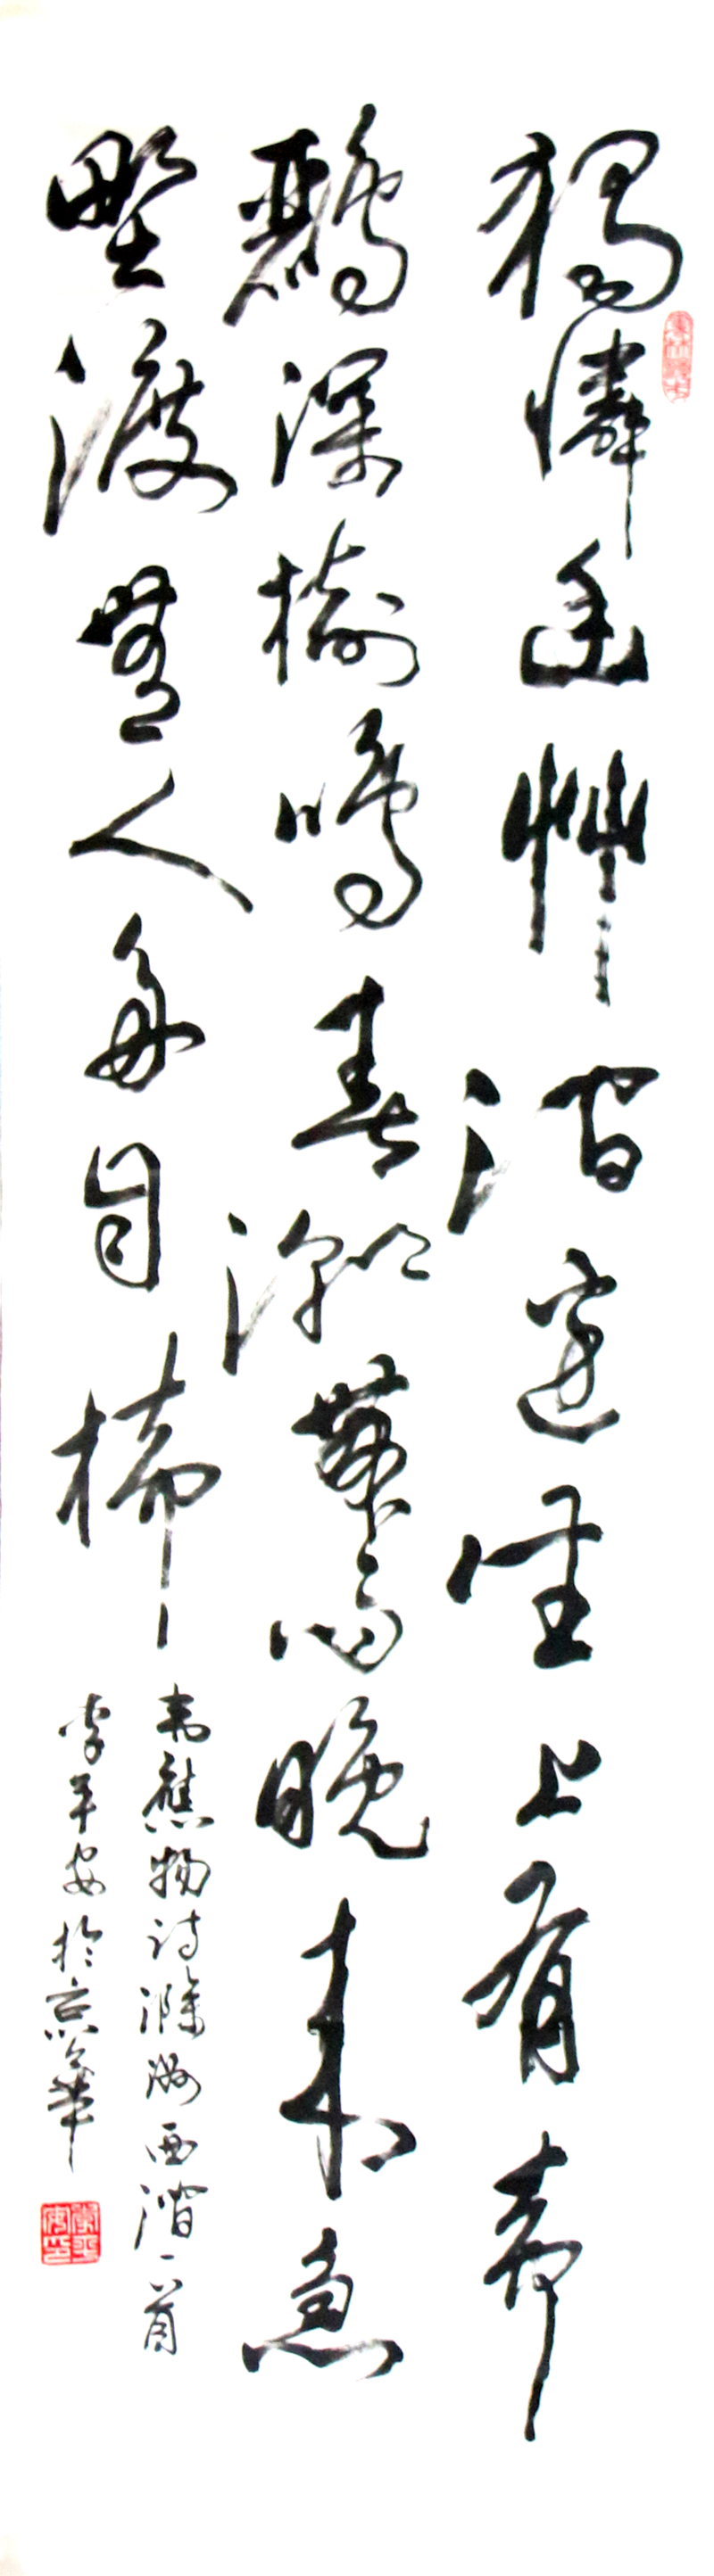 獨憐幽艸澗邊生上有黃
鸝深樹鳴春潮帶雨晚来急
野渡無人舟自橫
韦應物诗滁州西澗一首
李平安於京華